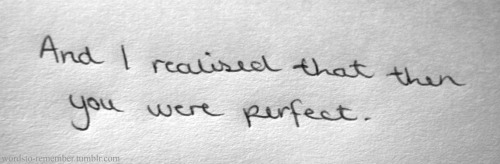 And I realised that then
you were perfect.
words-to-remember.tumblr.com